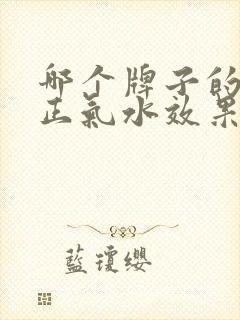 哪个牌子的
正氣水效果
藍瓊纓